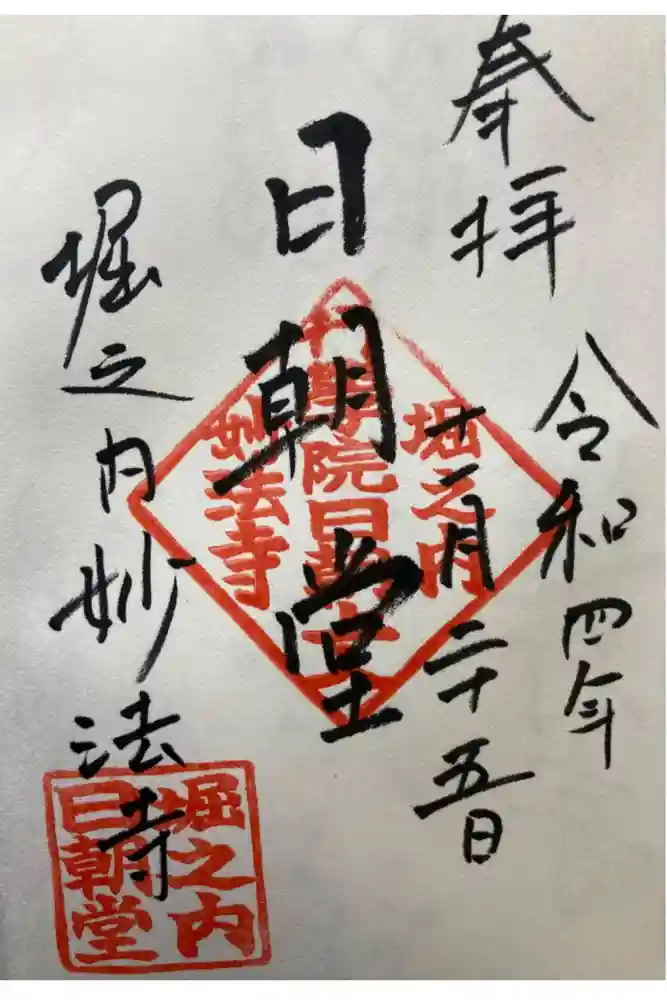 奉拝
令和四年
十二月二十五日
日朝堂
堀之内妙法寺
堀之内
學院日朝
妙法寺
堀之内
日朝堂